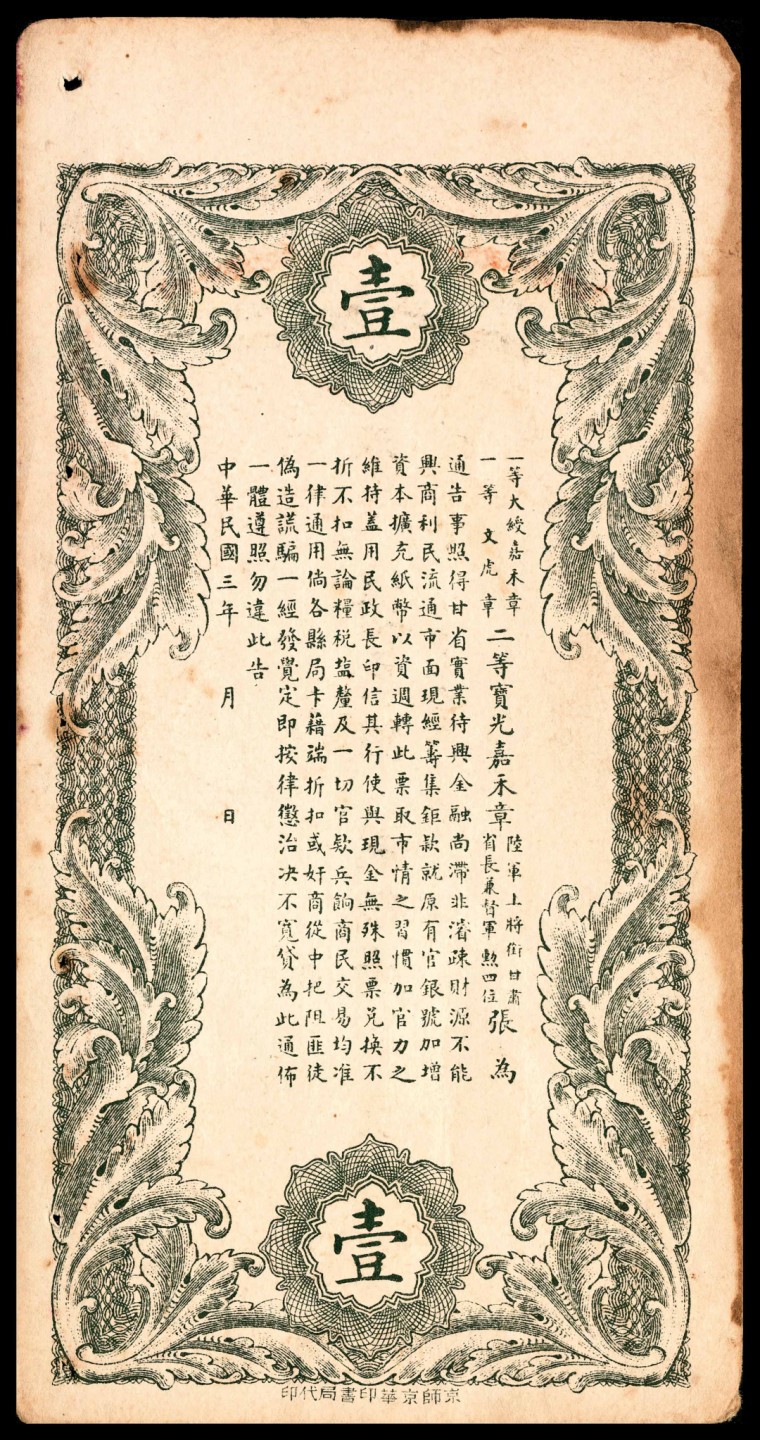 壹
一等大綬嘉禾章
一等文虎章
二等寶光嘉禾章
陸軍上將銜甘肅
省長兼督軍勲四位
張 為
通告事照得甘省實業待興金融尚滯非濬疎財源不能
興商利民流通市面現經籌集鉅款就原有官銀號加增
資本擴充紙幣以資週轉此票取市情之習慣加官力之
維持蓋用民政長印信其行使與現金無殊照票兑換不
折不扣無論糧税塩釐及一切官欵兵餉商民交易均准
一律通用倘各縣局卡藉端折扣或奸商從中把阻匪徒
偽造謊騙一經發覺定即按律懲治决不寬貸為此通佈
一體遵照勿違此告
中華民國三年 月 日
壹
京師京華印書局代印